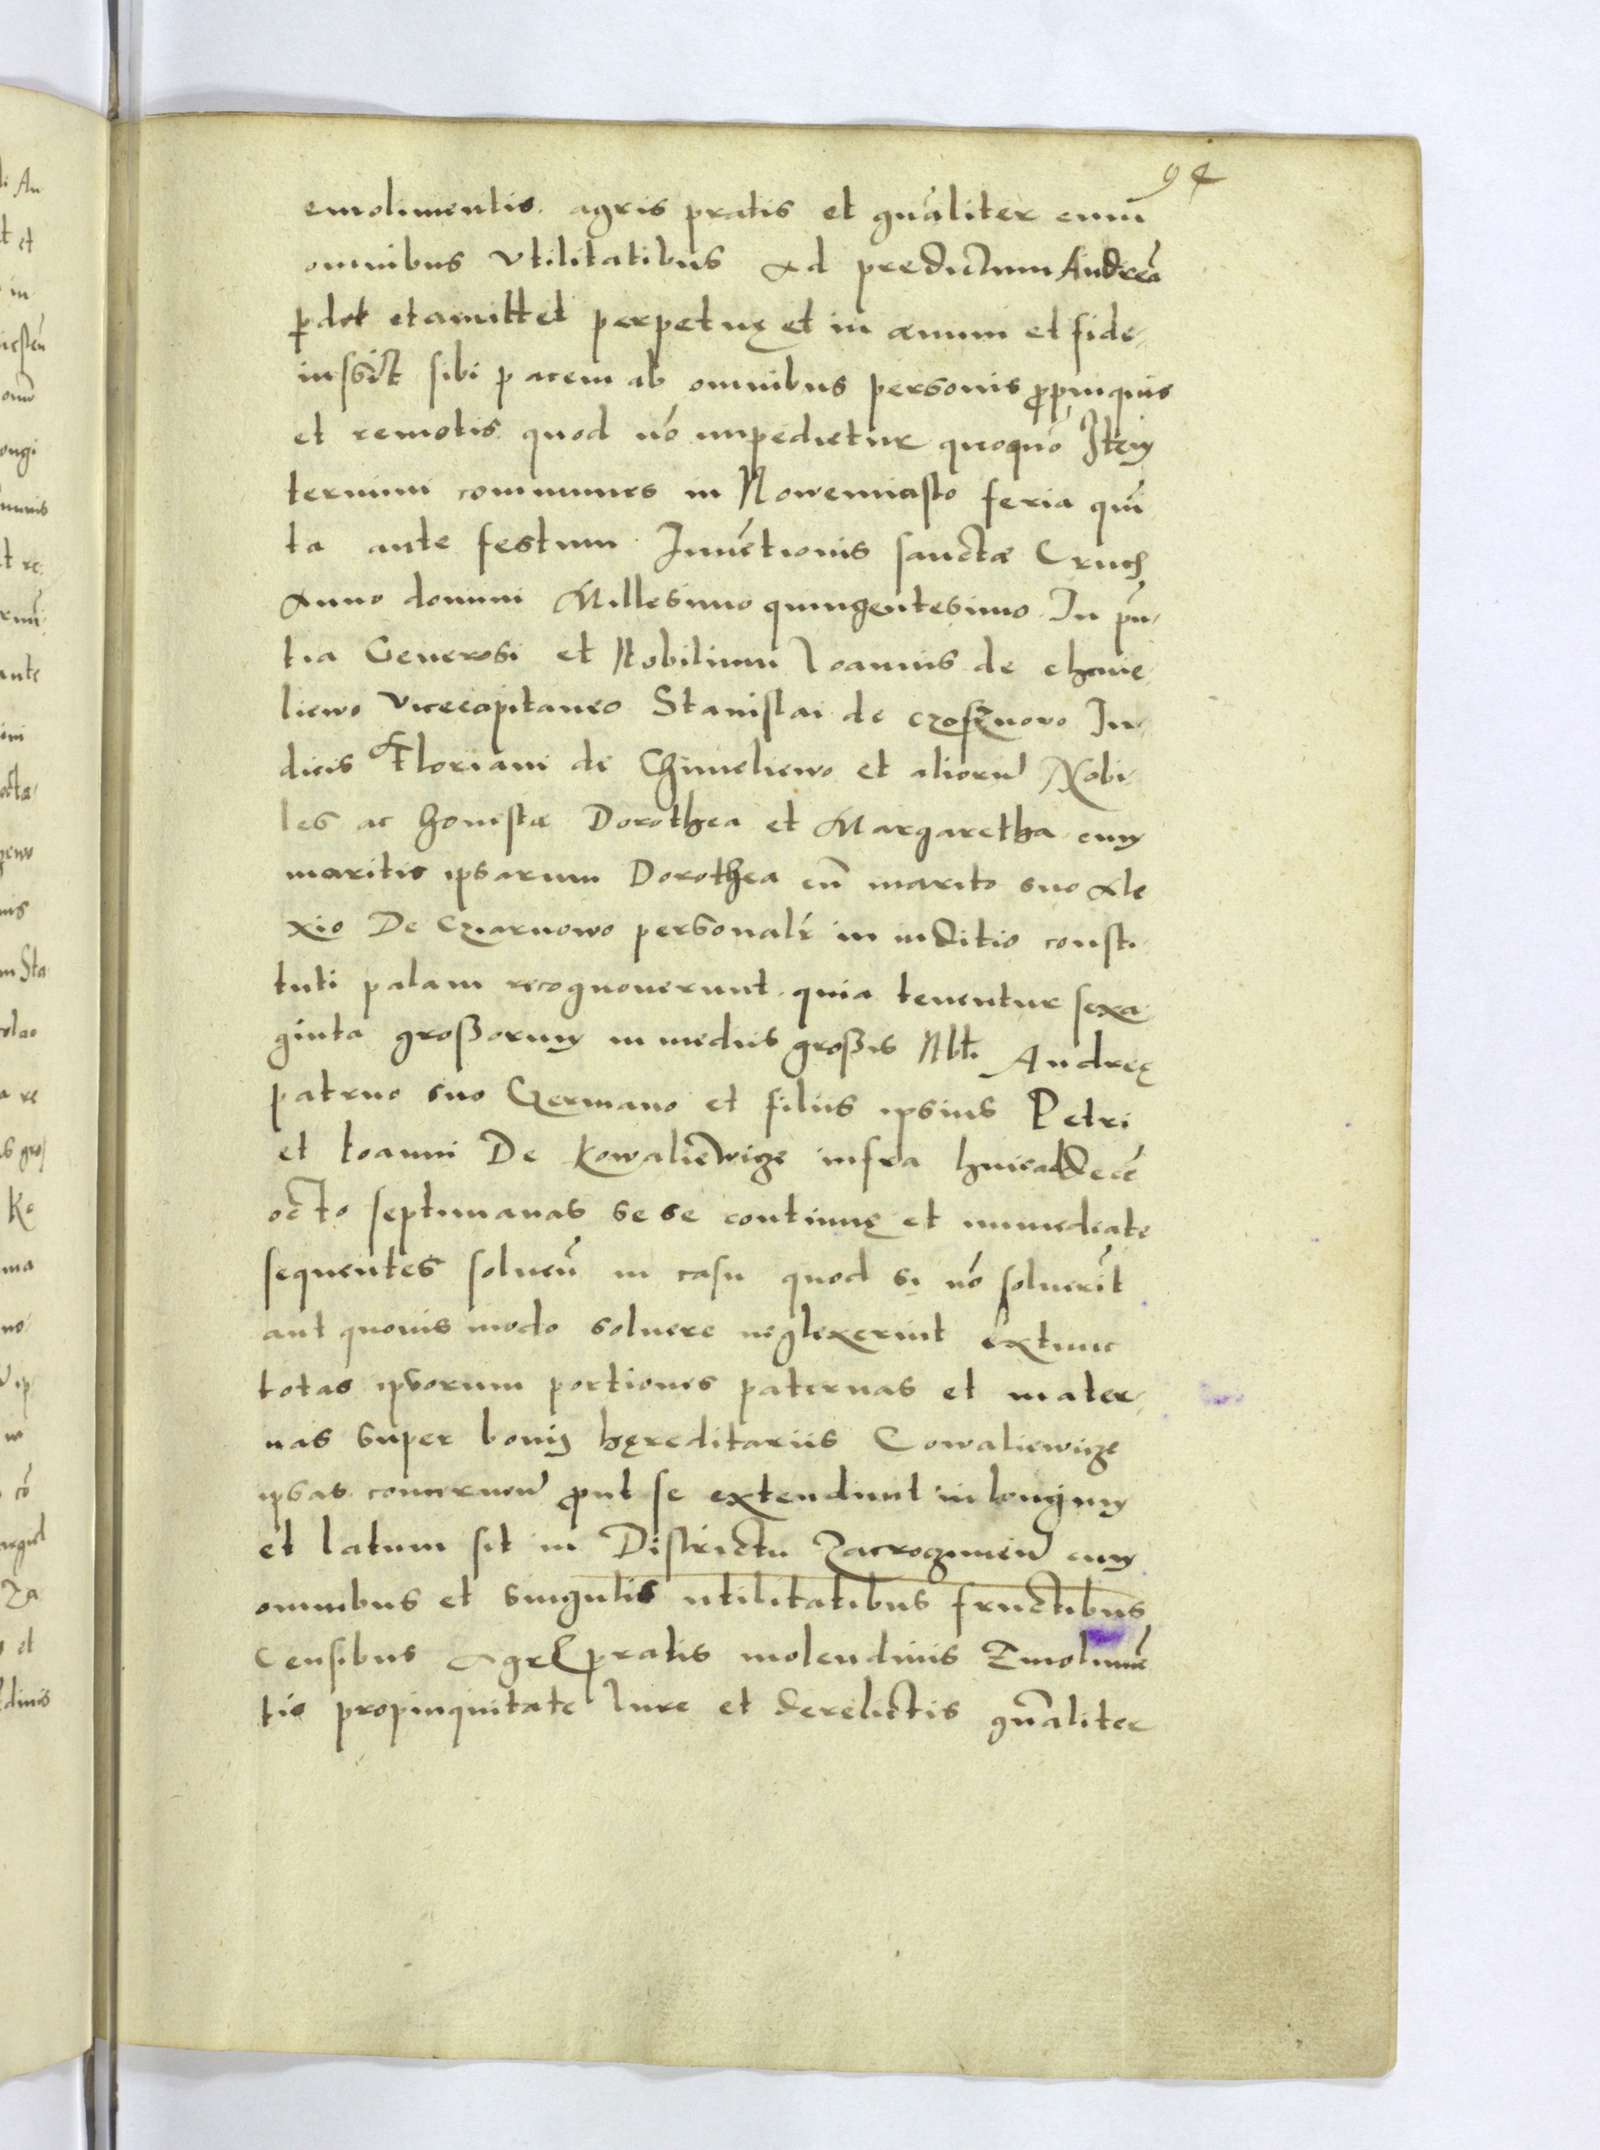 94
emolimentis agris pratis et gnāliter cum
omnibus vtilitatibus ad predictum Andreā
ꝑdet et amittet perpetuę et in aeuum et fide-
insb̄it sibi pacem ab omnibus personis ꝓpinquis
et remotis quod nō impedietur quoquō Item
termini communes in Nowemiasto feria quī
ta ante festum Inuētionis sanctae Crucis
Anno domini Millesimo quingentesimo In pn̄-
tia Generosi et Nobilium Ioannis de chmie-
liewo vicecapitaneo Stanislai de Iu-
dicis Floriani de Chmeliewo et aliorū Nobi-
les ac honestae Dorothea et Margaretha cum
maritis ipsarum Dorothea cū marito suo Ale
xio De Czarnowo personalr̄ in iuditio consti-
tuti palam recognouerunt quia tenentur sexa-
ginta großorum in mediis großis Nbl̄i Andreę
patruo suo Germano et filiis ipsius Petri
et Ioanni De Kowaliewicze infra hinc ad decē
octo septimanas se se continuę et immediate
sequentes soluen̄ in casu quod si nō soluerīt
aut quouis modo soluere neglexerint extunc
totas ipsorum portiones paternas et mater-
nas super bonis hęreditariis Cowaliewicze
ipsas concernen̄ ꝓut se extendunt in longum
et latum sit in Districtu Zacroczimien̄ cum
omnibus et singulis utilitatibus fructibus
Censibus Agr̄ pratis molendinis Emolimē
tis propinquitate Iure et derelictis gnāliter